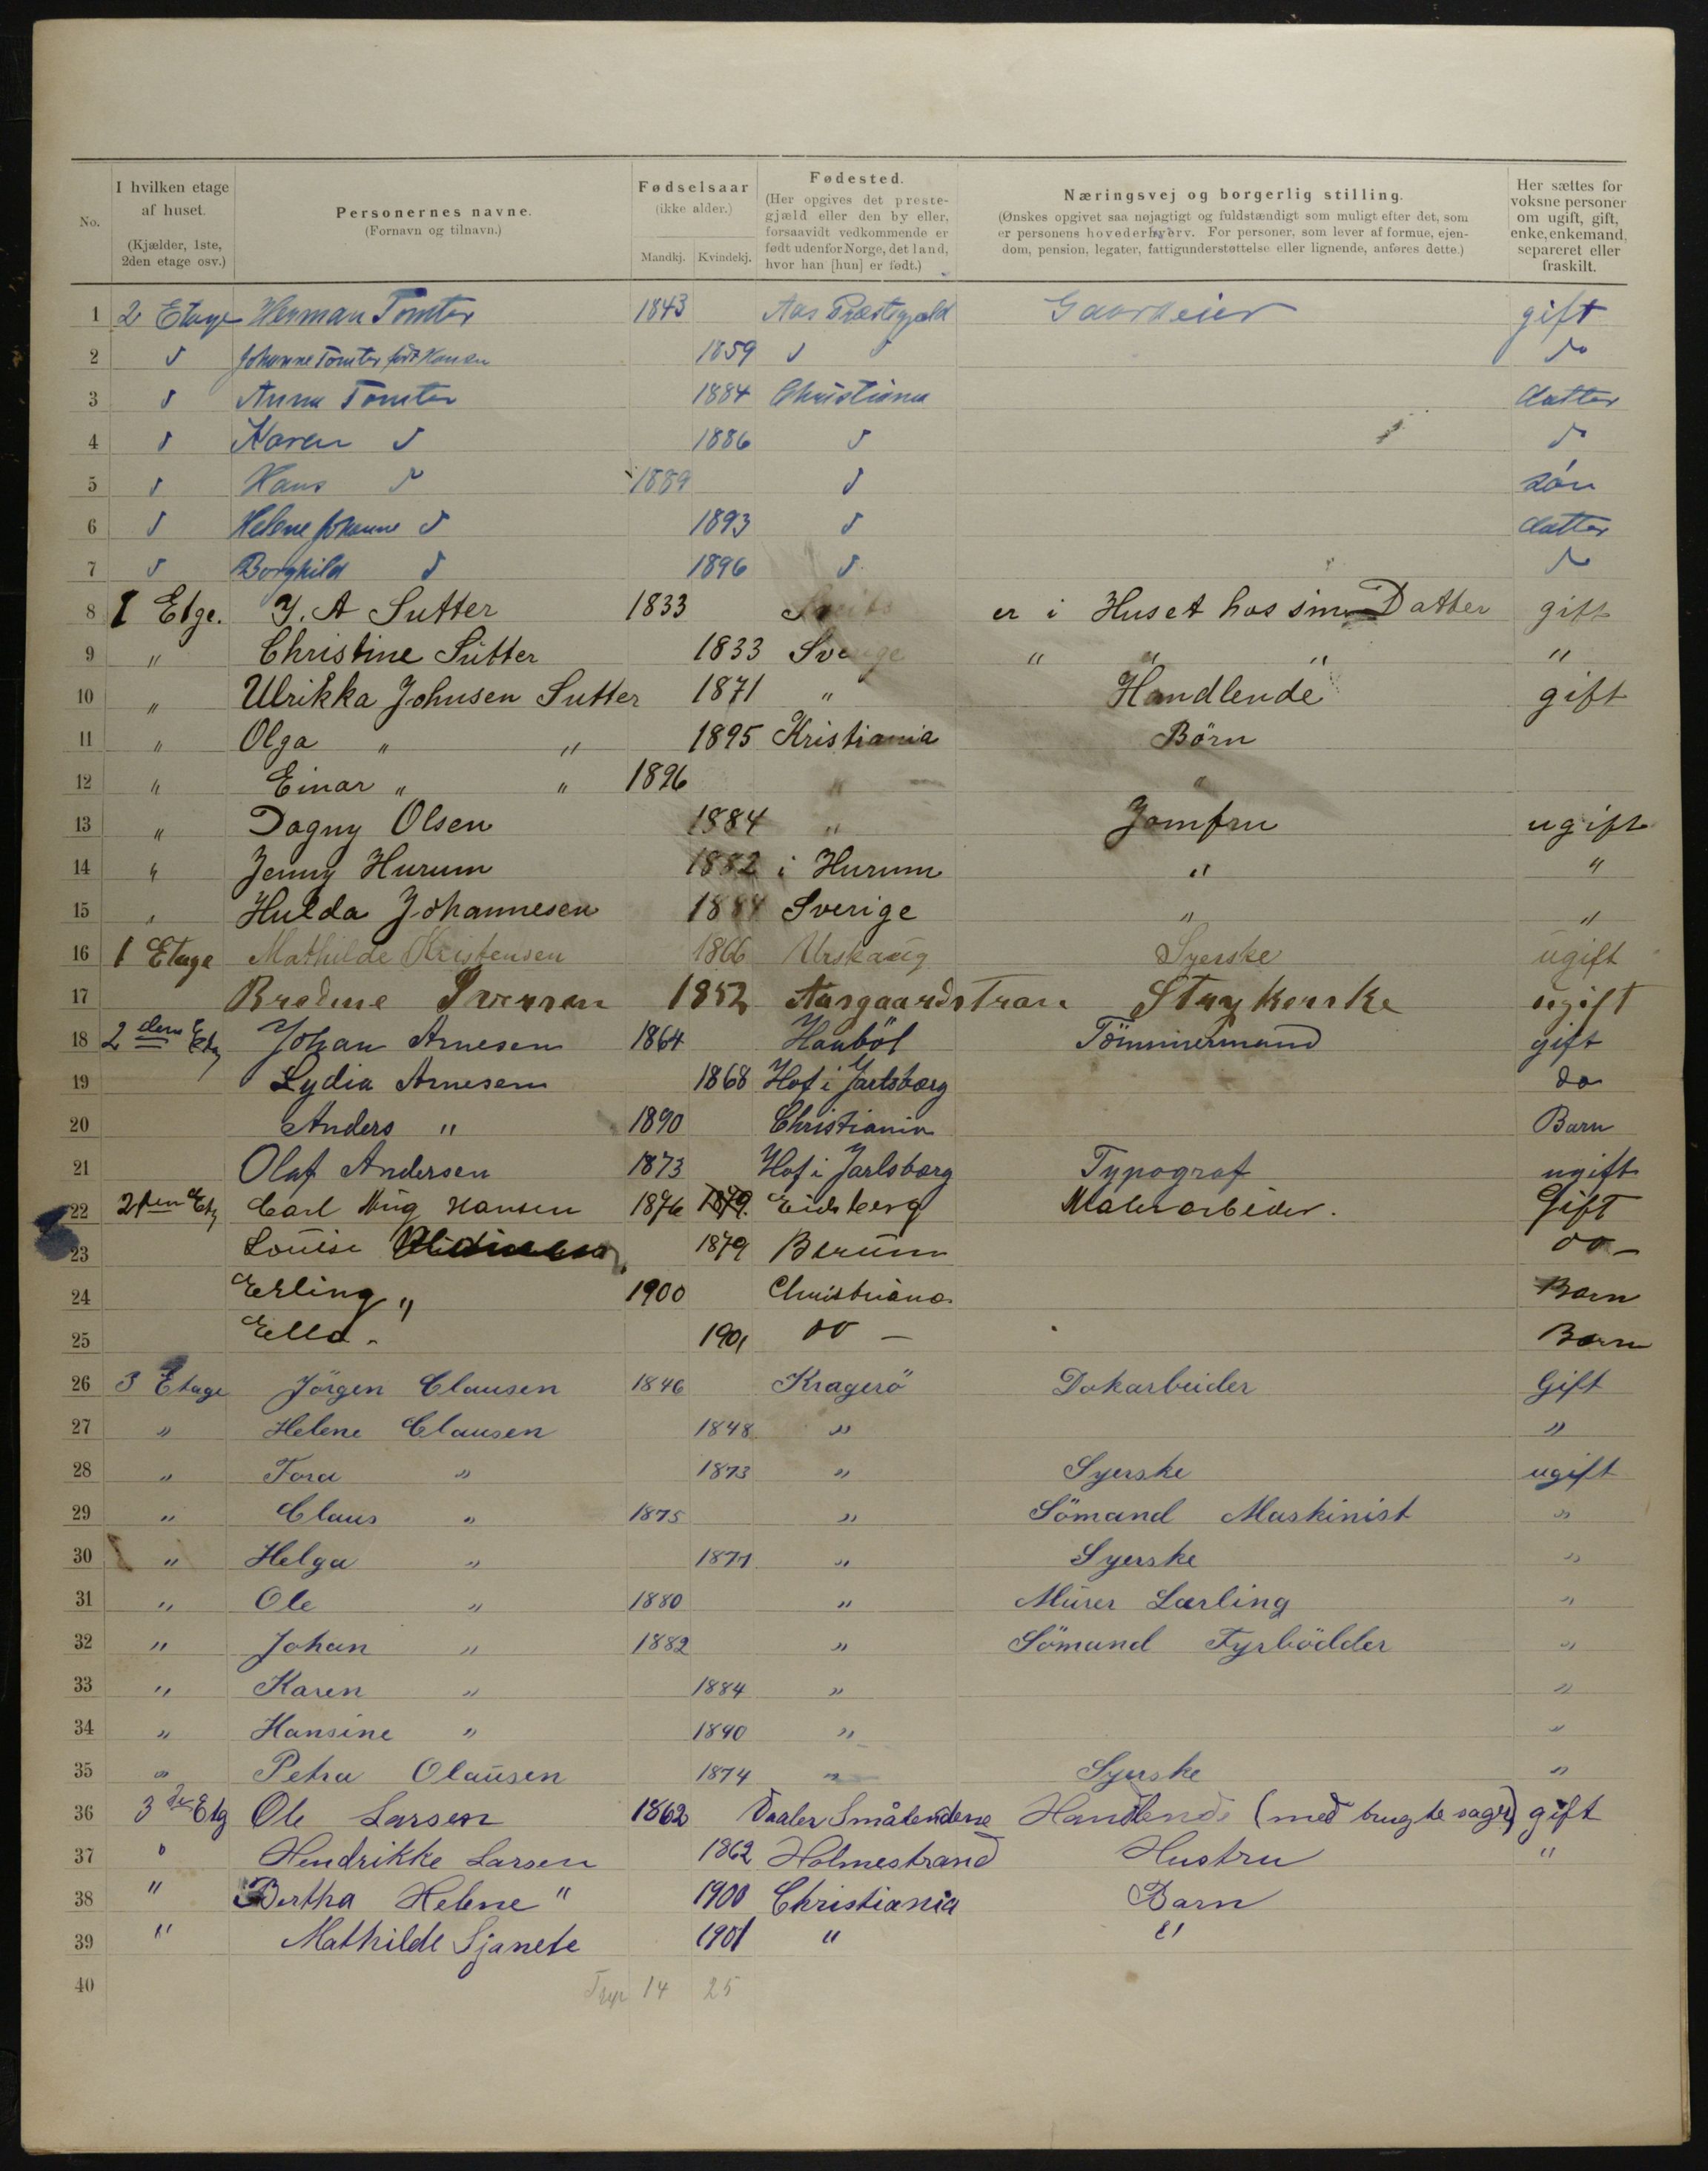 No.
I hvilken etage af huset. (Kjælder, 1ste, 2den etage osv.)
Personernes navne. (Fornavn og tilnavn.)
Fødselsaar (ikke alder.) Mandkj. Kvindekj.
Fødested. (Her opgives det prestegjæld eller den by eller, forsaavidt vedkommende er født udenfor Norge, det land, hvor han [hun] er født.)
Næringsvej og borgerlig stilling. (Ønskes opgivet saa nøjagtigt og fuldstændigt som muligt efter det, som er personens hovederhverv. For personer, som lever af formue, ejendom, pension, legater, fattigunderstøttelse eller lignende, anføres dette.)
Her sættes for voksne personer om ugift, gift, enke, enkemand, separeret eller fraskilt.
1 2 Etage Herman Tomter 1843 Aas Præstegjæld Gaardeier gift
2 d Johanne Tomter født Hansen 1859 d d do
3 d Anna Tomter 1884 Christiania datter
4 d Karen d 1886 d do
5 d Hans do 1889 d søn
6 d Helene Johanne d 1893 d datter
7 d Borghild d 1896 d do
8 1 Etge. J. A Sutter 1833 er i Huset hos sin Datter gift
9 " Christine Sutter 1833 Sverige " " " "
10 " Ulrikka Johnsen Sutter 1871 " Handlende gift
11 " Olga " " 1895 Kristiania Börn
12 " Einar " " 1896 " "
13 " Dagny Olsen 1884 " Jomfru ugift
14 " Jenny Hurum 1882 i Hurum " "
15 " Hulda Johannesen 1884 Sverige " "
16 1 Etage Mathilde Kristensen 1866 Urskaug Syerske ugift
17 1852 Aasgaardstran Strykerske ugift
18 2den Etg Johan Arnesen 1864 Hauböl Tömmermand gift
19 Lydia Arnesen 1868 Hof i Jarlsberg do
20 Anders " 1890 Christiania Barn
21 Olaf Andersen 1873 Hof i Jarlsberg Typograf ugift
22 2den Etg Carl Aug Hansen 1876 1879. Eidsberg Malerarbeider. Gift
23 Louise 1879 Berum do -
24 Erling " 1900 Christiania Barn
25 Ella - 1901 do - Barn
26 3 Etage Jörgen Clausen 1846 Kragerö Dokarbeider Gift
27 " Helene Clausen 1848 " "
28 " Tora " 1873 " Syerske ugift
29 " Claus " 1875 " Sömand Maskinist "
30 " Helga " 1877 " Syerske "
31 " Ole " 1880 " Murer Lærling "
32 " Johan " 1882 " Sömand Fyrbödder "
33 " Karen " 1884 " "
34 " Hansine " 1890 " "
35 " Petra Olausen 1874 " Syerske "
36 3de Etg Ole Larsen 1862 Vaaler Smålendene Handlende (med brugte sager) gift
37 " Hendrikke Larsen 1862 Holmestrand Hustru "
38 " Bertha Helene " 1900 Christiania Barn
39 " Mathilde Sjanete 1901 " "
40 14 25